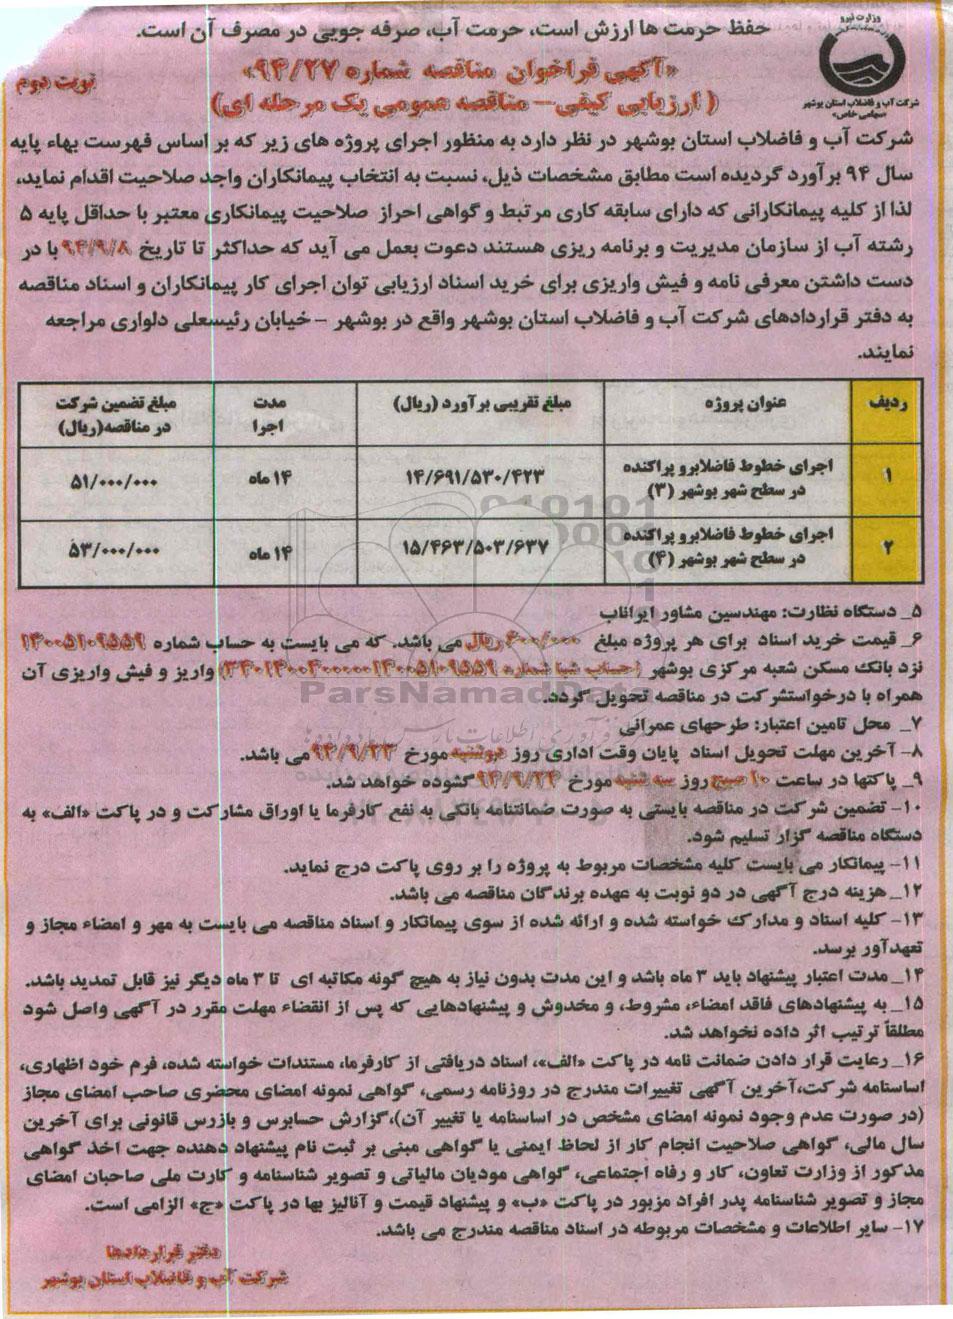 وزارت نیرو
شرکت آب و فاضلاب استان بوشهر
«سهامی خاص»
حفظ حرمت ها ارزش است، حرمت آب، صرفه جویی در مصرف آن است.
«آگهی فراخوان مناقصه شماره ۹۴/۲۷»
نوبت دوم
( ارزیابی کیفی– مناقصه عمومی یک مرحله ای)
شرکت آب و فاضلاب استان بوشهر در نظر دارد به منظور اجرای پروژه های زیر که بر اساس فهرست بهاء پایه
سال ۹۴ برآورد گردیده است مطابق مشخصات ذیل، نسبت به انتخاب پیمانکاران واجد صلاحیت اقدام نماید،
لذا از کلیه پیمانکارانی که دارای سابقه کاری مرتبط و گواهی احراز صلاحیت پیمانکاری معتبر با حداقل پایه ۵
رشته آب از سازمان مدیریت و برنامه ریزی هستند دعوت بعمل می آید که حداکثر تا تاریخ ۹۴/۹/۸ با در
دست داشتن معرفی نامه و فیش واریزی برای خرید اسناد ارزیابی توان اجرای کار پیمانکاران و اسناد مناقصه
به دفتر قراردادهای شرکت آب و فاضلاب استان بوشهر واقع در بوشهر – خیابان رئیسعلی دلواری مراجعه
نمایند.
ردیف | عنوان پروژه | مبلغ تقریبی برآورد (ریال) | مدت اجرا | مبلغ تضمین شرکت در مناقصه(ریال)
۱ | اجرای خطوط فاضلابرو پراکنده در سطح شهر بوشهر (۳) | ۱۴/۶۹۱/۵۳۰/۴۲۳ | ۱۴ ماه | ۵۱/۰۰۰/۰۰۰
۲ | اجرای خطوط فاضلابرو پراکنده در سطح شهر بوشهر (۴) | ۱۵/۴۶۳/۵۰۳/۶۳۷ | ۱۴ ماه | ۵۳/۰۰۰/۰۰۰
۵_ دستگاه نظارت: مهندسین مشاور ایراناب
۶_ قیمت خرید اسناد برای هر پروژه مبلغ ۴۰۰/۰۰۰ ریال می باشد. که می بایست به حساب شماره ۱۴۰۰۵۱۰۹۵۵۹
نزد بانک مسکن شعبه مرکزی بوشهر (حساب شبا شماره ۳۴۰۱۴۰۰۴۰۰۰۰۰۱۴۰۰۵۱۰۹۵۵۹) واریز و فیش واریزی آن
همراه با درخواستشرکت در مناقصه تحویل گردد.
۷_ محل تامین اعتبار: طرحهای عمرانی
۸- آخرین مهلت تحویل اسناد پایان وقت اداری روز دوشنبه مورخ ۹۴/۹/۲۳ می باشد.
۹_ پاکتها در ساعت ۱۰ صبح روز سه شنبه مورخ ۹۴/۹/۲۴ گشوده خواهد شد.
۱۰- تضمین شرکت در مناقصه بایستی به صورت ضمانتنامه بانکی به نفع کارفرما یا اوراق مشارکت و در پاکت «الف» به
دستگاه مناقصه گزار تسلیم شود.
۱۱- پیمانکار می بایست کلیه مشخصات مربوط به پروژه را بر روی پاکت درج نماید.
۱۲_ هزینه درج آگهی در دو نوبت به عهده برندگان مناقصه می باشد.
۱۳- کلیه اسناد و مدارک خواسته شده و ارائه شده از سوی پیمانکار و اسناد مناقصه می بایست به مهر و امضاء مجاز و
تعهدآور برسد.
۱۴_ مدت اعتبار پیشنهاد باید ۳ ماه باشد و این مدت بدون نیاز به هیچ گونه مکاتبه ای تا ۳ ماه دیگر نیز قابل تمدید باشد.
۱۵_ به پیشنهادهای فاقد امضاء، مشروط، و مخدوش و پیشنهادهایی که پس از انقضاء مهلت مقرر در آگهی واصل شود
مطلقاً ترتیب اثر داده نخواهد شد.
۱۶_ رعایت قرار دادن ضمانت نامه در پاکت «الف»، اسناد دریافتی از کارفرما، مستندات خواسته شده، فرم خود اظهاری،
اساسنامه شرکت،آخرین آگهی تغییرات مندرج در روزنامه رسمی، گواهی نمونه امضای محضری صاحب امضای مجاز
(در صورت عدم وجود نمونه امضای مشخص در اساسنامه یا تغییر آن)،گزارش حسابرس و بازرس قانونی برای آخرین
سال مالی، گواهی صلاحیت انجام کار از لحاظ ایمنی یا گواهی مبنی بر ثبت نام پیشنهاد دهنده جهت اخذ گواهی
مذکور از وزارت تعاون، کار و رفاه اجتماعی، گواهی مودیان مالیاتی و تصویر شناسنامه و کارت ملی صاحبان امضای
مجاز و تصویر شناسنامه پدر افراد مزبور در پاکت «ب» و پیشنهاد قیمت و آنالیز بها در پاکت «ج» الزامی است.
۱۷- سایر اطلاعات و مشخصات مربوطه در اسناد مناقصه مندرج می باشد.
دفتر قراردادها
شرکت آب و فاضلاب استان بوشهر
ParsNamadData